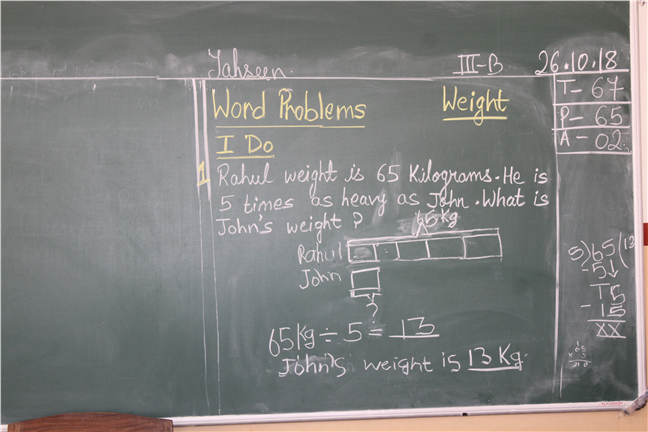 Tahseen.
III-B
26.10.18
T- 67
P- 65
A- 02
Word Problems
Weight
I Do
1 Rahul weight is 65 Kilograms. He is
5 times as heavy as John. What is
John's weight ?
65kg
Rahul
John
?
65Kg ÷ 5 = 13
John's weight is 13 Kg.
5)65(13
-5↓
15
-15
XX